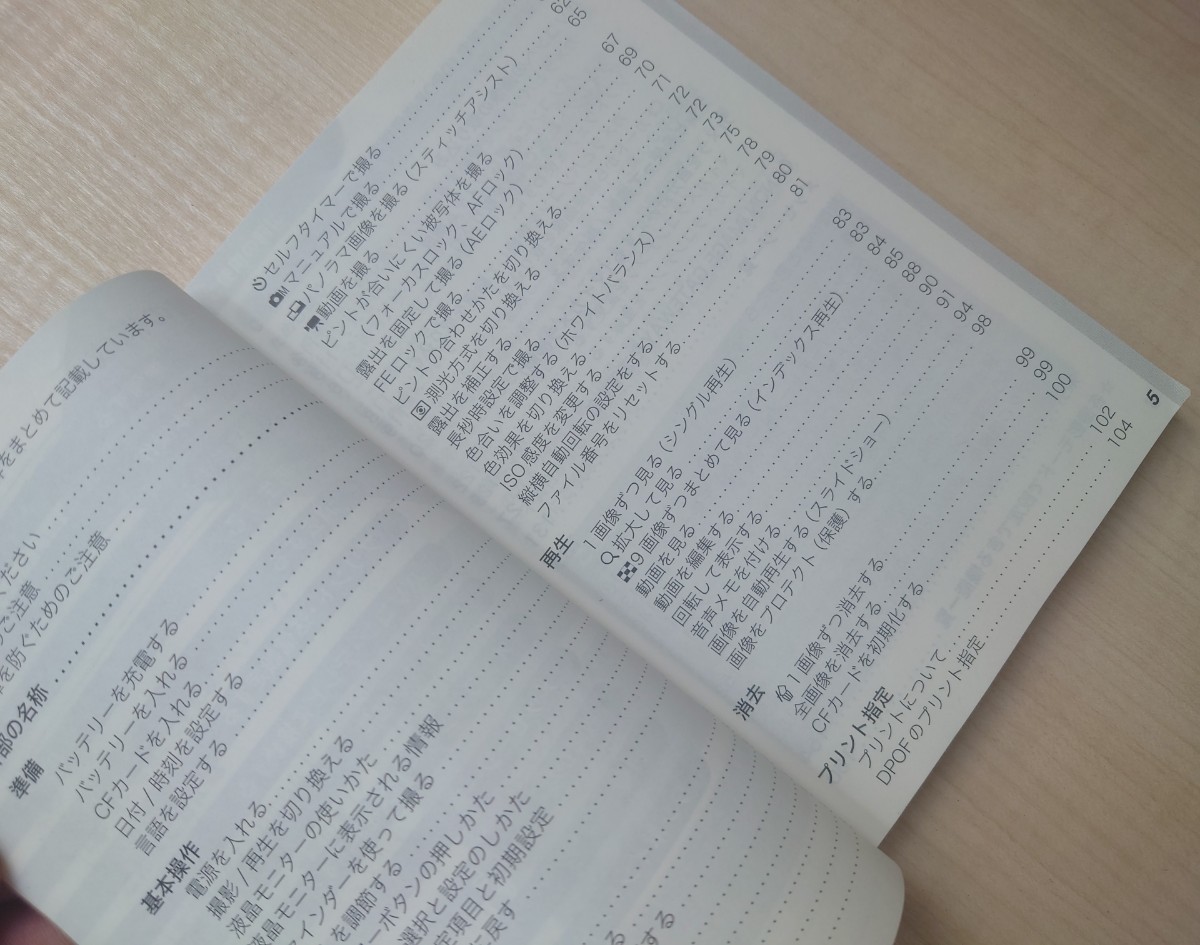 をまとめて記載しています。
ください
のご注意
を防ぐためのご注意
部の名称
準備
バッテリーを充電する
バッテリーを入れる
CFカードを入れる
日付/時刻を設定する
言語を設定する
基本操作
電源を入れる
撮影/再生を切り換える
液晶モニターの使いかた
液晶モニターに表示される情報
インダーを使って撮る
を調節する
ーボタンの押しかた
選択と設定のしかた
定項目と初期設定
に戻す
セルフタイマーで撮る
M マニュアルで撮る
パノラマ画像を撮る(スティッチアシスト) 62
動画を撮る 65
ピントが合いにくい被写体を撮る
(フォーカスロック、AFロック) 67
露出を固定して撮る(AEロック) 69
FEロックで撮る 70
ピントの合わせかたを切り換える 71
測光方式を切り換える 72
露出を補正する 72
長秒時設定で撮る 73
色合いを調整する(ホワイトバランス) 75
色効果を切り換える 78
ISO感度を変更する 79
縦横自動回転の設定をする 80
ファイル番号をリセットする 81
再生
1画像ずつ見る(シングル再生) 83
拡大して見る 83
9画像ずつまとめて見る(インデックス再生) 84
動画を見る 85
動画を編集する 88
回転して表示する 90
音声メモを付ける 91
画像を自動再生する(スライドショー) 94
画像をプロテクト(保護)する 98
消去
1画像ずつ消去する 99
全画像を消去する 99
CFカードを初期化する 100
プリント指定
プリントについて 102
DPOFのプリント指定 104
5